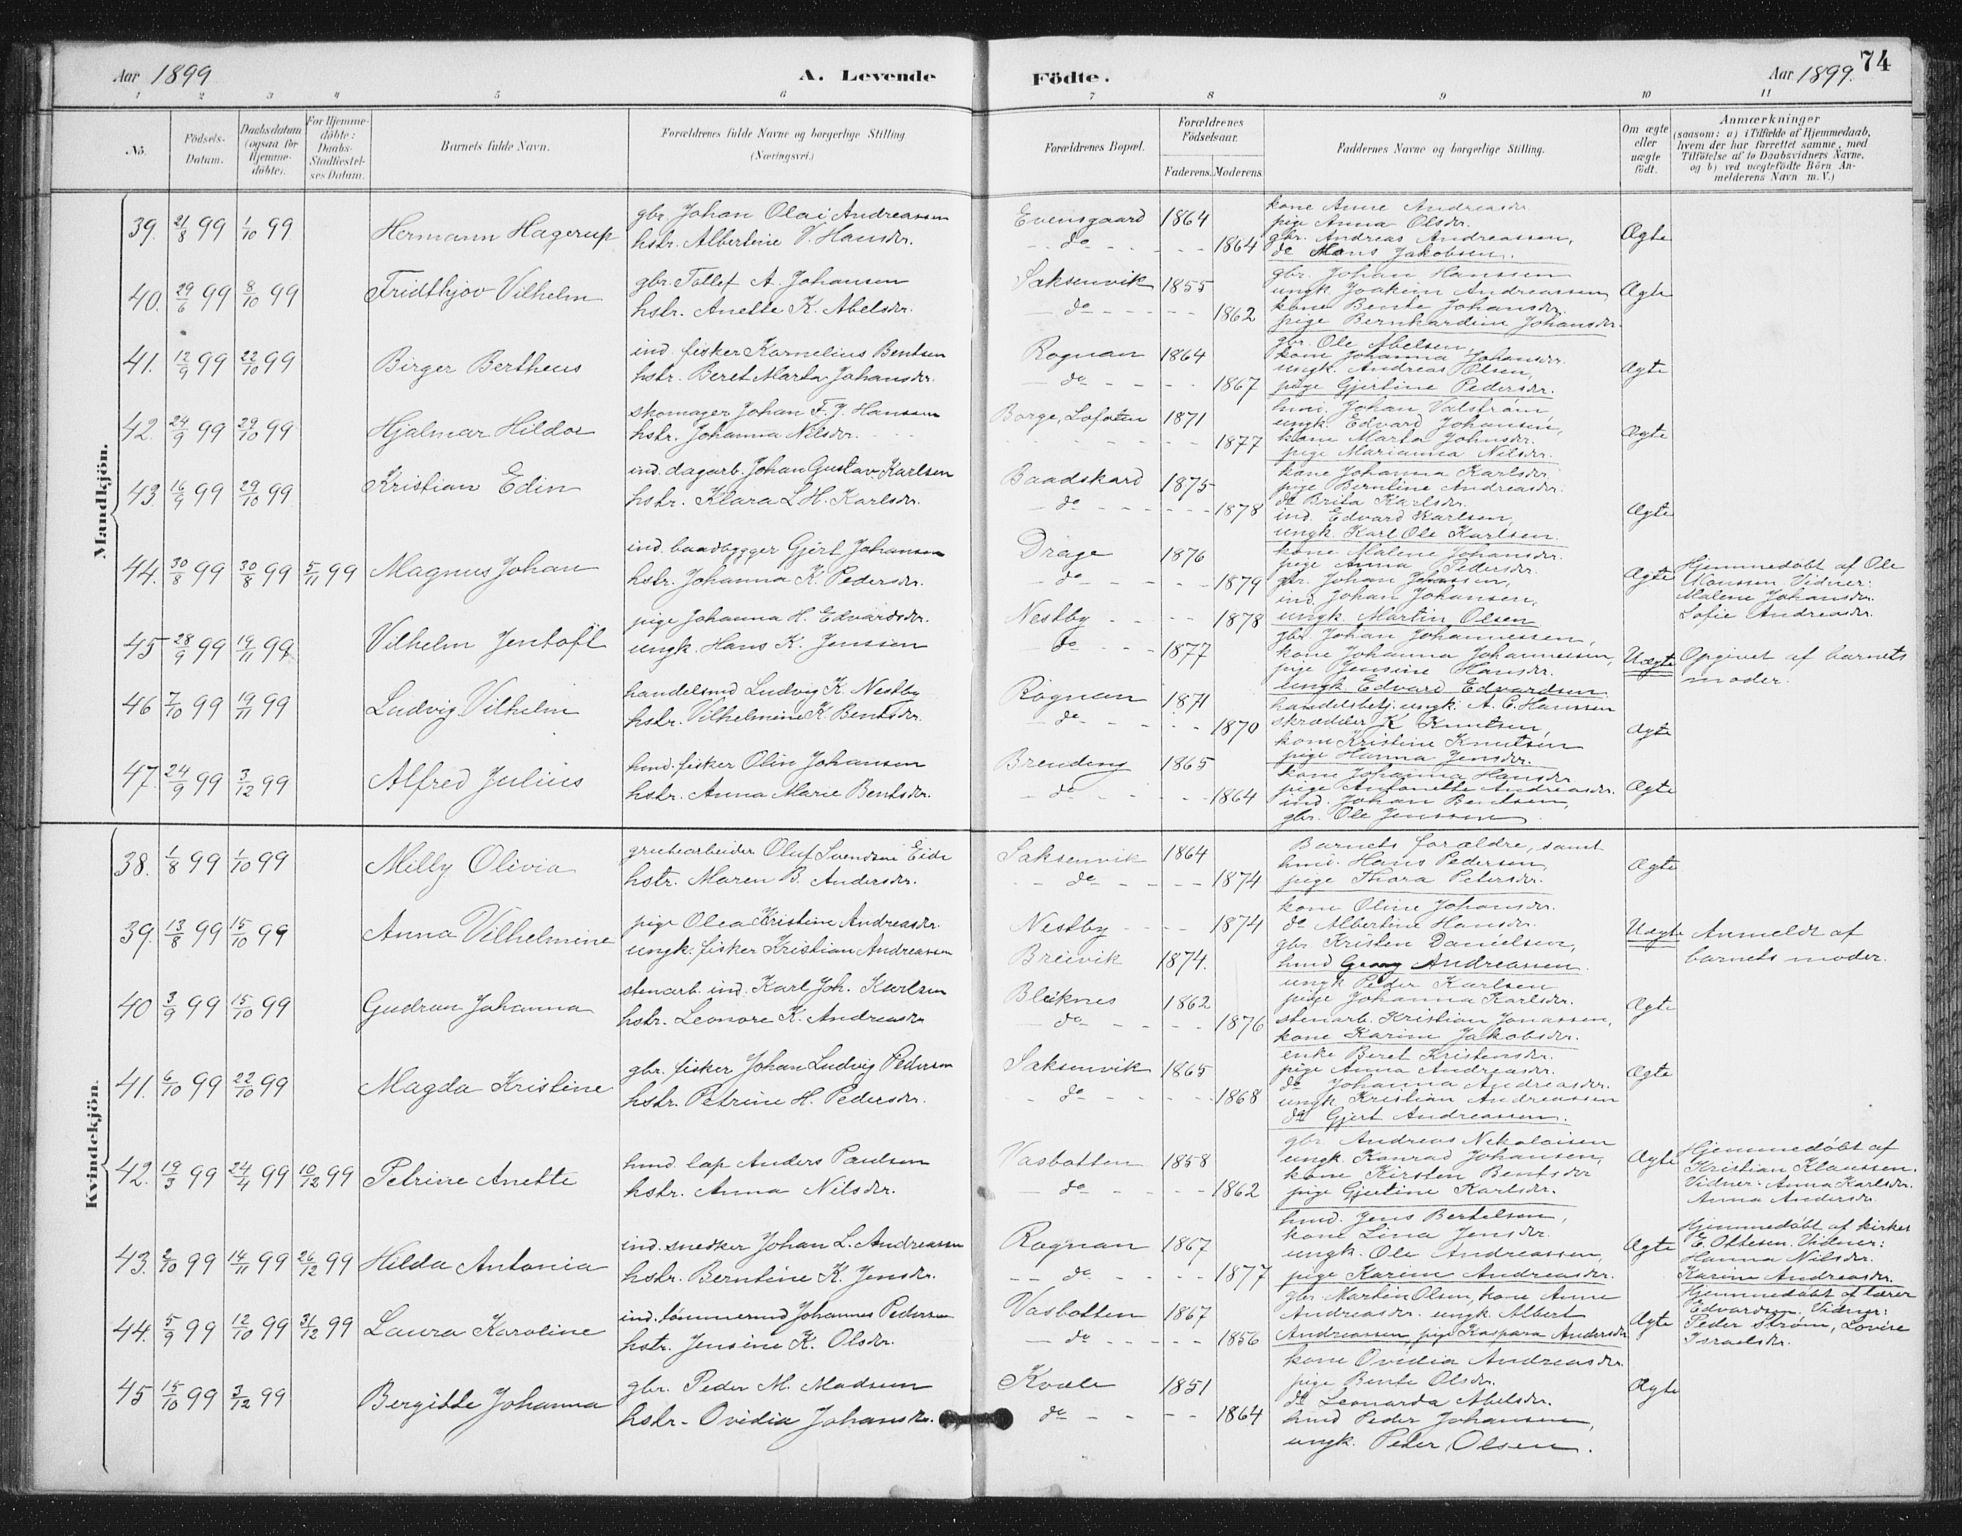 Aar 1899
A. Levende Födte.
Aar 1899. 74
1 2 3 4 5 6 7 8 9 10 11
No.
Födsels-Datum.
Daabsdatum (ogsaa for Hjemmedöbte).
For Hjemmedöbte: Daabs-Stadfæstelses Datum.
Barnets fulde Navn.
Forældrenes fulde Navne og borgerlige Stilling (Næringsvei.)
Forældrenes Bopæl.
Forældrenes Födselsaar.
Faderens. Moderens.
Faddernes Navne og borgerlige Stilling.
Om ægte eller uægte födt.
Anmærkninger
(saasom: a) i Tilfælde af Hjemmedaab, hvem der har forrettet samme, med Tilföielse af to Daabsvidners Navne, og b) ved uægtefödte Börn Anmelderens Navn m. V.)
Mandkjön.
39. 21/8 99 1/10 99 Hermann Hagerup
gbr. Johan Olai Andreassen Evensgaard 1864
hstr. Albertine V. Hansdr. do 1864
kone Anne Andreasdr.
pige Anna Olsdr.
gbr. Andreas Andreassen,
do Hans Jakobsen.
Ægte
40. 29/6 99 8/10 99 Fridthjov Vilhelm
gbr. Tollef A. Johansen Saksenvik 1855
hstr. Anette K. Abelsdr. do 1862
gbr. Johan Hanssen
ungk. Joakim Andreassen
kone Bente Johansdr.
pige Bernhardine Johansdr.
Ægte
41. 12/9 99 22/10 99 Birger Bertheus
ind. fisker Kornelius Bentsen Rognan 1864
hstr. Beret Marta Johansdr. do 1867
gbr. Ole Abelsen,
kone Johanna Johansdr.
ungk. Andreas Olsen,
pige Gjertine Pedersdr.
Ægte
42. 24/9 99 29/10 99 Hjalmar Hildor
skomager Johan F. J. Hanssen Borge, Lofoten 1871
hstr. Johanna Nilsdr. 1877
hmd. Johan Valstrøm,
ungk. Edvard Johansen,
kone Marta Johnsdr.
pige Marianna Nilsdr.
Ægte
43. 16/9 99 29/10 99 Kristian Edin
ind. dagarb. Johan Gustav Karlsen Baadskard 1875
hstr. Klara L H. Karlsdr. do 1878
kone Johanna Karlsdr.
pige Berntine Andreasdr.
do Brita Karlsdr.
ind. Edvard Karlsen,
ungk. Karl Ole Karlsen.
Ægte
44. 30/8 99 30/8 99 5/11 99 Magnus Johan
ind. baadbygger Gjert Johansen Drage 1876
hstr. Johanna K. Pedersdr. do 1879
kone Malene Johansdr.
pige Anna Pedersdr.
gbr. Johan Jonassen,
ind. Johan Johansen,
ungk. Martin Olsen
Ægte
Hjemmedøbt af Ole
Monssen. Vidner:
Malene Johansdr.
Sofie Andreasdr.
45 28/9 99 19/11 99 Vilhelm Jentoft
pige Johanna H. Edvardsdr. Nestby 1878
ungk. Hans K. Jenssen do 1877
gbr. Johan Johannessen,
kone Johanna Johannessen,
pige Jensine Hansdr.
ungk. Edvard Edvardsen
Uægte
Opgivet af barnets
moder.
46 7/10 99 19/11 99 Ludvig Vilhelm
handelsmd Ludvig K. Nestby Rognan 1871
hstr. Vilhelmine K. Bentsdr. do 1870
handelsbetj. ungk. A. C. Hanssen
skrædder K Knutsen,
kone Kristine Knutsen
pige Hanna Jensdr.
Ægte
47. 24/9 99 3/12 99 Alfred Julius
hmd. fisker Olin Johansen Breding 1865
hstr. Anna Marie Bentsdr. do 1864
kone Johanna Hansdr
pige Antonette Andreasdr.
ind. Johan Bentsen,
gbr. Ole Jenssen
Ægte
Kvindekjön.
38. 1/8 99 1/10 99 Milly Olivia
grubearbeider Oluf Svendsen Eide Saksenvik 1864
hstr. Maren B. Andersdr. do 1874
Barnets forældre, samt
hmd. Hans Pedersen,
pige Thora Petersdr.
Ægte
39. 13/8 99 15/10 99 Anna Vilhelmine
pige Olea Kristine Andreasdr. Nestby 1874
ungk. fisker Kristian Andreassen Breivik 1874.
kone Oline Johansdr.
do Albertine Hansdr.
gbr Kristen Danielsen,
hmd Georg Andreassen.
Uægte
Anmeldt af
barnets moder.
40 3/9 99 15/10 99 Gudrun Johanna
stenarb. ind. Karl Joh. Karlsen Bleiknes 1862
hstr. Leonore K. Andreasdr do 1876
ungk Peder Karlsen
pige Johanna Karlsdr.
stenarb. Kristian Jonassen,
kone Karine Jakobsdr.
Ægte
41. 6/10 99 22/10 99 Magda Kristine
gbr. fisker Johan Ludvig Pedersen Saksenvik 1865
hstr. Petrine H. Pedersdr. do 1868
enke Beret Kristensdr.
pige Anna Andreasdr.
do Johanna Andreasdr.
ungk. Kristian Andreassen
do Gjert Andreassen.
Ægte
42. 19/3 99 24/4 99 10/12 99 Petrine Anette
hmd. lap Anders Paulsen Vasbotten 1858
hstr. Anna Nilsdr. do 1862
gbr. Andreas Nikolaisen
ungk. Konrad Johansen,
kone Kirsten Bentsdr
pige Gjertine Karlsdr.
Ægte
Hjemmedøbt af
Kristian Klaussen.
Vidner: Anna Karlsdr.
Anna Andersdr
43. 2/10 99 14/11 99 26/12 99 Hilda Antonia
ind. snedker Johan L. Andreassen Rognan 1867
hstr. Berntine K. Jensdr. do 1877
hmd. Jens Bertelsen,
kone Lina Jensdr.
ungk. Ole Andreassen,
pige Karine Andreasdr.
Ægte
Hjemmedøbt af kirkes
E. Ottesen. Vidner:
Hanna Nilsdr.
Karine Andreasdr.
44. 5/9 99 12/10 99 31/12 99 Laura Karoline
ind. tømmermd Johannes Pedersen Vasbotten 1867
hstr. Jensine K. Olsdr. do 1856
gbr. Martin Olsen, kone Anne
Andreasdr. ungk Albert
Andreassen pige Kaspara Andersdr
Ægte
Hjemmedøbt af lærer
Edvardsen. Vidner:
Peder Strøm, Lovise
Israelsdr.
45 15/10 99 3/12 99 Bergitte Johanna
gbr. Peder M. Madsen Kvæle 1851
hstr. Ovidia Johansdr. do 1864
kone Ovidia Andreasdr.
pige Bente Olsdr.
do Leonarda Abelsdr.
hmd Peder Johansen,
ungk. Peder Olsen.
Ægte